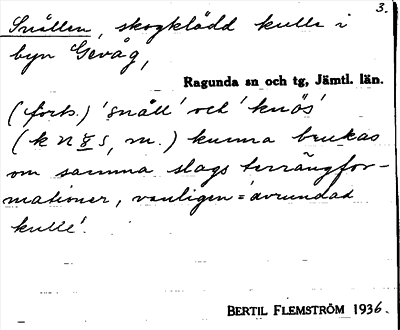 3.
Snållen, skogklädd kulle i
byn Gevåg,
Ragunda sn och tg, Jämtl. län.
(forts.) 'snåll' och 'knös'
(k n s, m.) kunna brukas
om samma slags terrängfor-
mationer, vanligen = 'avrundad
kulle'.
BERTIL FLEMSTRÖM 1936.